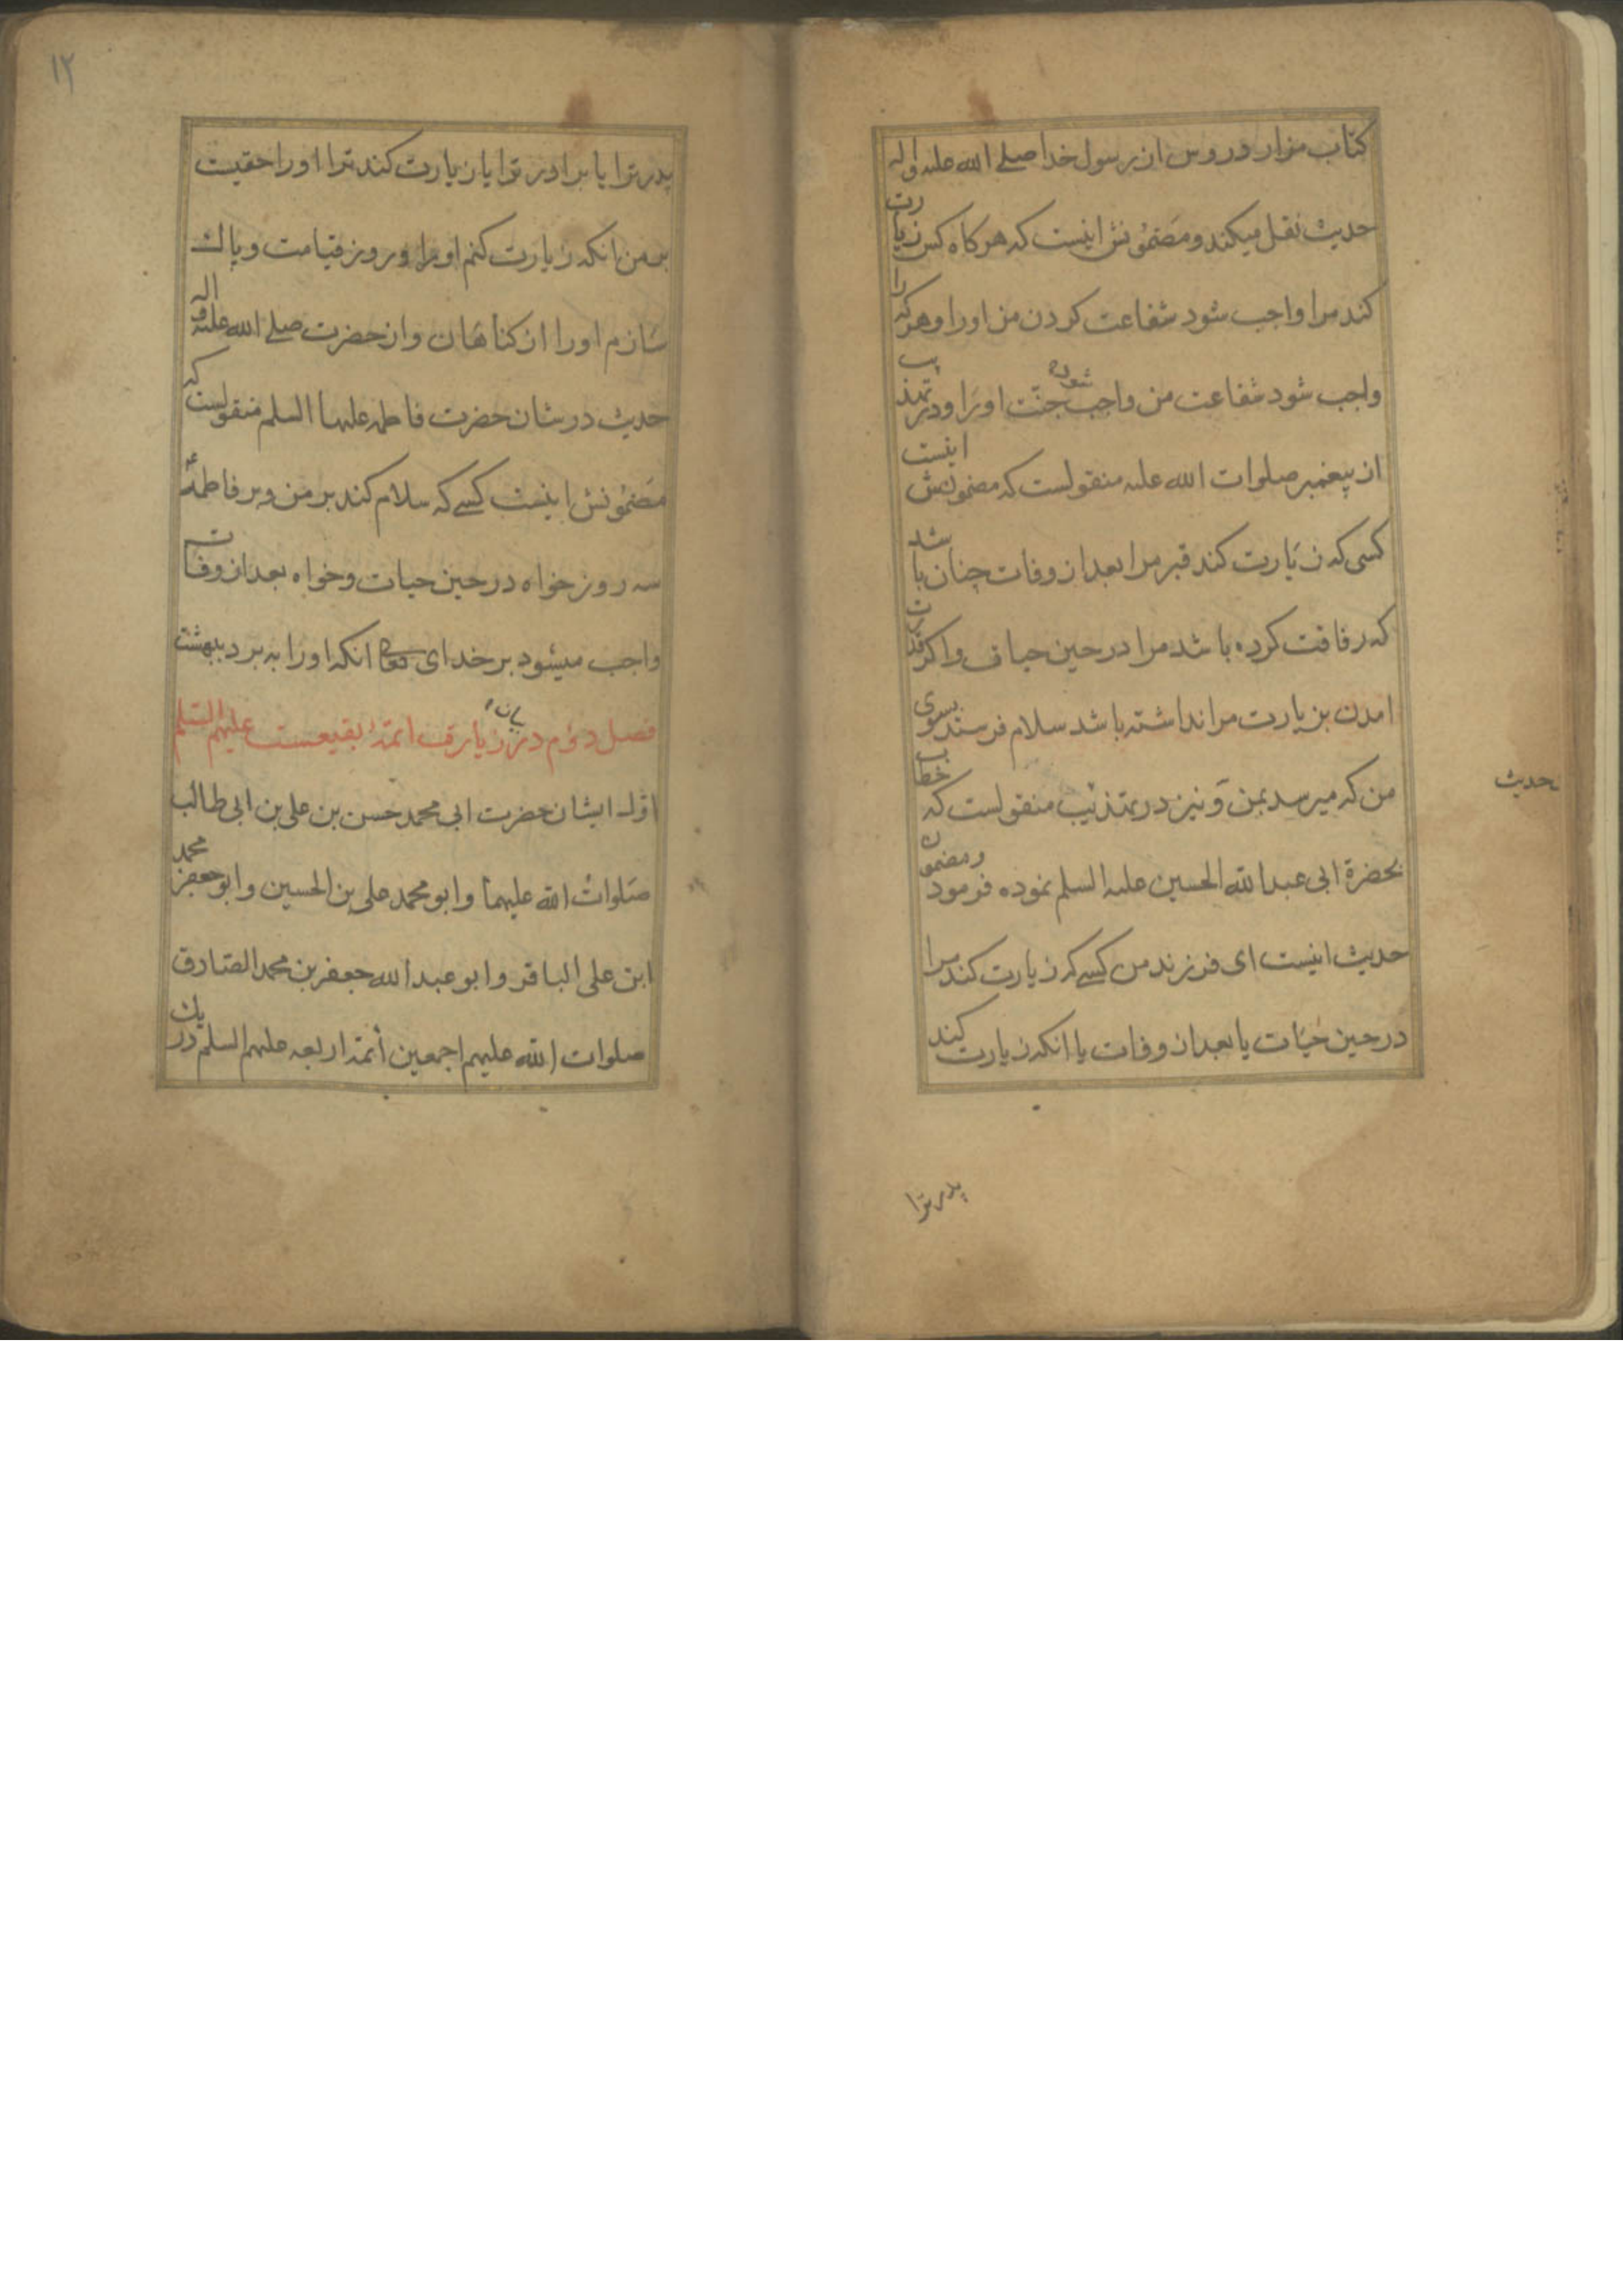 کتاب مزار دروس از رسول خدا صلے الله علیه واله
حدیث نقل میکند و مضمونش اینست که هر کاه کس زیارت
کند مرا واجب شود شفاعت کردن من اورا و هر که را
واجب شود شفاعت من واجب شود جنّت اورا و در تهذیب
از پیغمبر صلوات الله علیه منقولست که مضمونش اینست
کسی که زیارت کند قبر مرا بعد از وفات چنان باشد
که رفاقت کرده باشد مرا در حین حیات و اکر قدرت
امدن بزیارت مرا نداشته باشد سلام فرستد بسوی
من که میرسد بمن و نیز در تهذیب منقولست که خطاب
حدیث
بحضرة ابی عبدالله الحسین علیه السلم نموده فرمود و مضمون
حدیث اینست ای فرزند من کسے که زیارت کند مرا
در حین حیات یا بعد از وفات یا انکه زیارت کند
پدر ترا
۱۲
پدر ترا یا برادر ترا یا زیارت کند ترا اورا حقیست
بر من انکه زیارت کنم اورا در روز قیامت و پاک
سازم اورا از کناهان و از حضرت صلے الله علیه و اله
حدیث در شان حضرت فاطمه علیها السلم منقولست که
مضمونش اینست کسے که سلام کند بر من و بر فاطمهٔ
سه روز خواه در حین حیات و خواه بعد از وفات
واجب میشود بر خدای انکه اورا به برد ببهشت
فصل دوّم در بیان زیارت ائمهٔ بقیعست علیهم السّلم
اوّل ایشان حضرت ابی محمد حسن بن علی بن ابی طالب
صلوات الله علیهما و ابو محمد علی بن الحسین و ابو جعفر محمد
ابن علی الباقر و ابو عبد الله جعفر بن محمد الصادق
صلوات الله علیهم اجمعین ائمه اربعه علیهم السلم در یک